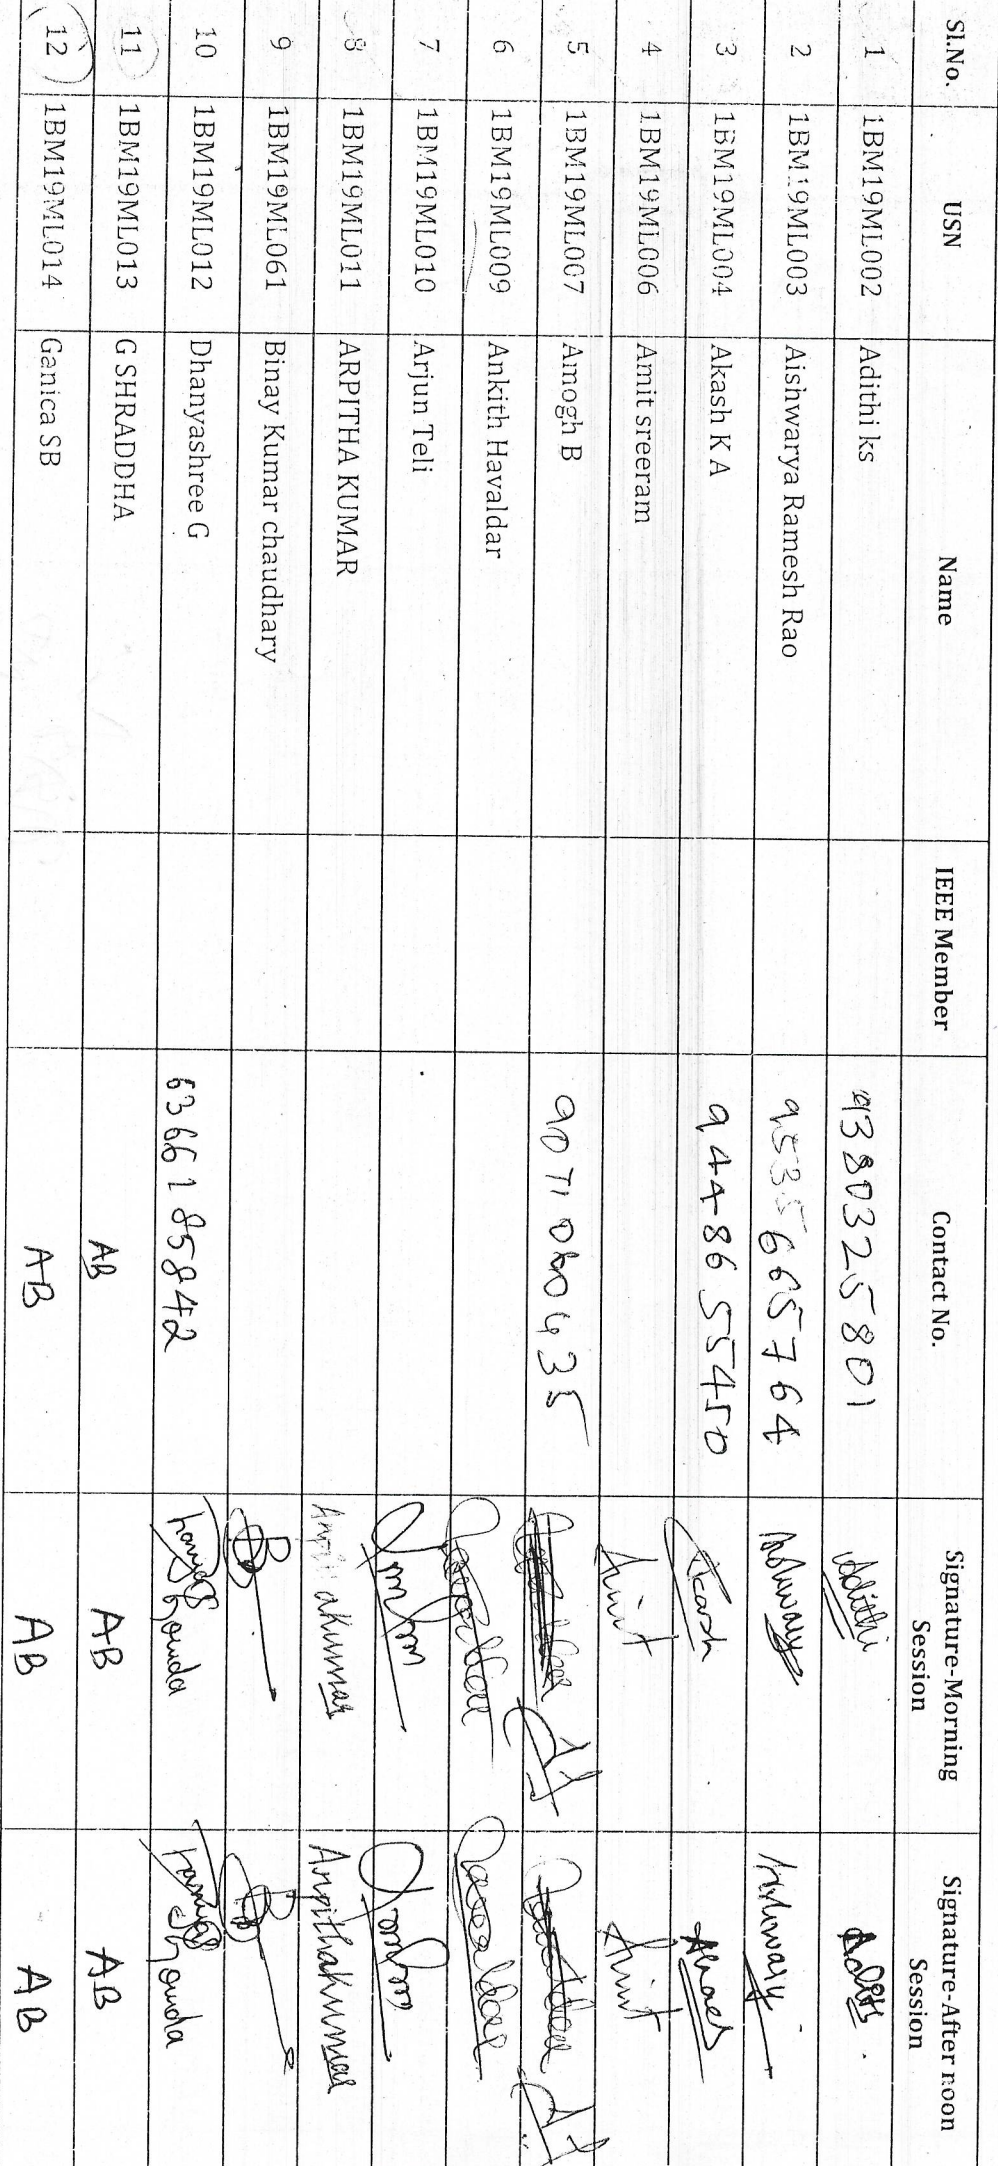 Sl.No. USN Name IEEE Member Contact No. Signature-Morning Session Signature-After noon Session
1 1BM19ML002 Adithi ks 9380325801 Adithi
2 1BM19ML003 Aishwarya Ramesh Rao 9535665764
3 1BM19ML004 Akash K A 9448655450 Akash
4 1BM19ML006 Amit sreeram Amit Amit
5 1BM19ML007 Amogh B
6 1BM19ML009 Ankith Havaldar
7 1BM19ML010 Arjun Teli
8 1BM19ML011 ARPITHA KUMAR Arpithakumar Arpithakumar
9 1BM19ML061 Binay Kumar chaudhary
10 1BM19ML012 Dhanyashree G 6366185842
11 1BM19ML013 G SHRADDHA AB AB AB
12 1BM19ML014 Ganica SB AB AB AB